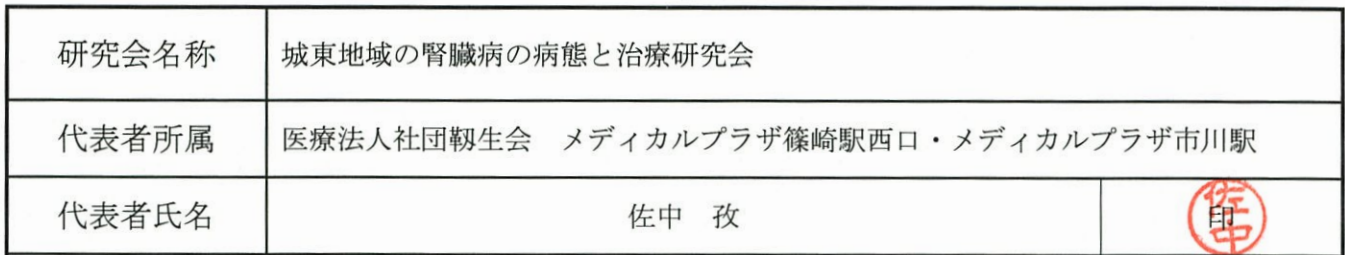 研究会名称
城東地域の腎臓病の病態と治療研究会
代表者所属
医療法人社団靱生会　メディカルプラザ篠崎駅西口・メディカルプラザ市川駅
代表者氏名
佐中　孜
印
佐中